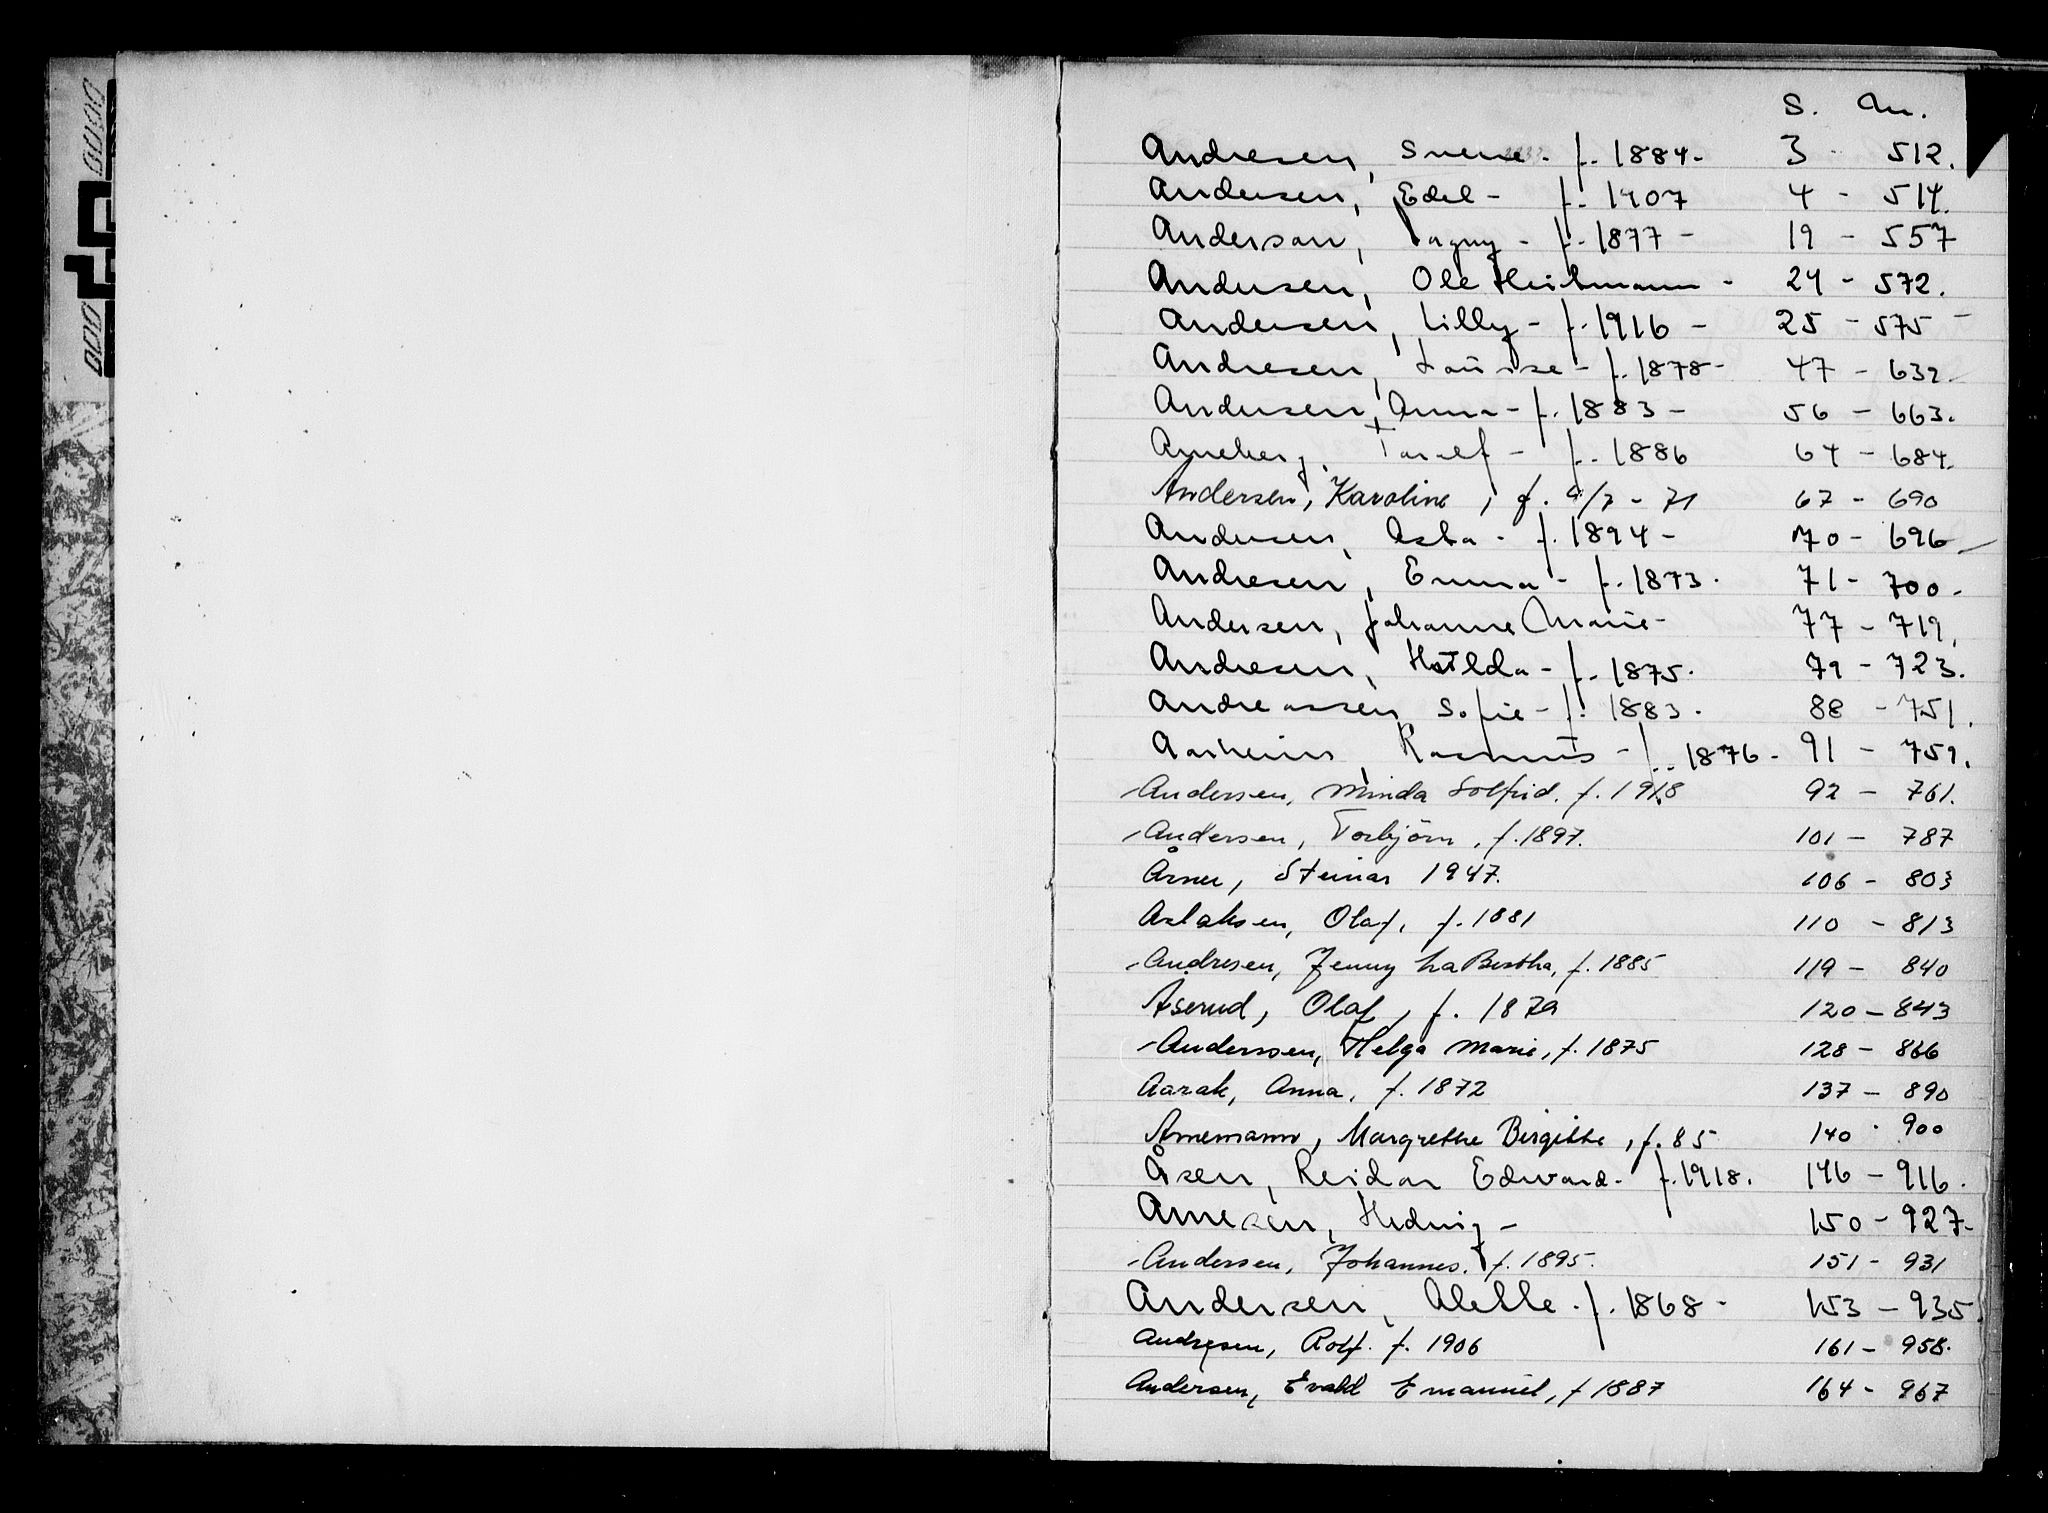 S. Nr.
Andresen, Sverre - f. 1884 - 3 - 512.
Andersen, Edel - f. 1907 4 - 514.
Anderson, Dagny - f. 1877 - 19 - 557
Andersen, Ole - 24 - 572.
Andersen, Lilly - f. 1916 - 25 - 575 -
Andresen, Louise - f. 1878 - 47 - 639
Andersen, Anna - f. 1883 - 56 - 663.
f. 1886 64 - 684.
Andersen, Karoline, f. 9/7 - 71 67 - 690
Andersen, Asta - f. 1894 - 70 - 696
Andresen, Emma - f. 1873. 71 - 700.
Andersen, Johanne Marie - 77 - 719.
Andresen, Hilda - f. 1875. 79 - 723.
Andreassen, Sofie - f. 1883. 88 - 751.
Aarheim, Rasmus - f. 1876 - 91 - 759.
Andersen, Minda Solfrid. f. 1918 92 - 761.
Andersen, Torbjörn, f. 1897. 101 - 787
Årnes, Steinar 1947. 106 - 803
Aslaksen, Olaf, f. 1881 110 - 813
Andresen, Jenny La Bertha, f. 1885 119 - 840
Åserud, Olaf, f. 1879 120 - 843
Anderssen, Helga Marie, f. 1875 128 - 866
Aarak, Anna, f. 1872 137 - 890
Arnemann, Margrethe Birgitte, f. 85 140 - 900
Åsen, Reidar Edvard - f. 1918. 146 - 916.
Arnesen, Hedvig - 150 - 927 -
Andersen, Johannes, f. 1895. 151 - 931
Andersen, Alette - f. 1868 - 153 - 935
Andresen, Rolf. f. 1906 161 - 958.
Andersen, Evald Emanuel, f 1887 164 - 967